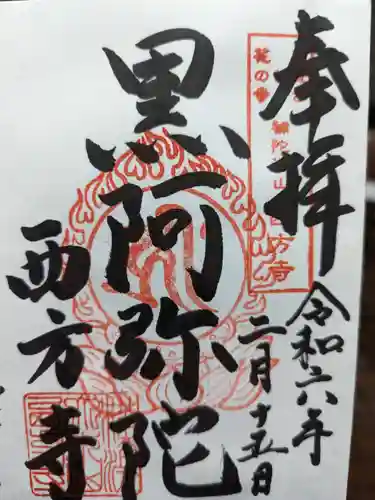 奉拝
令和六年
二月十五日
黒阿弥陀
西方寺
花の寺
西方寺